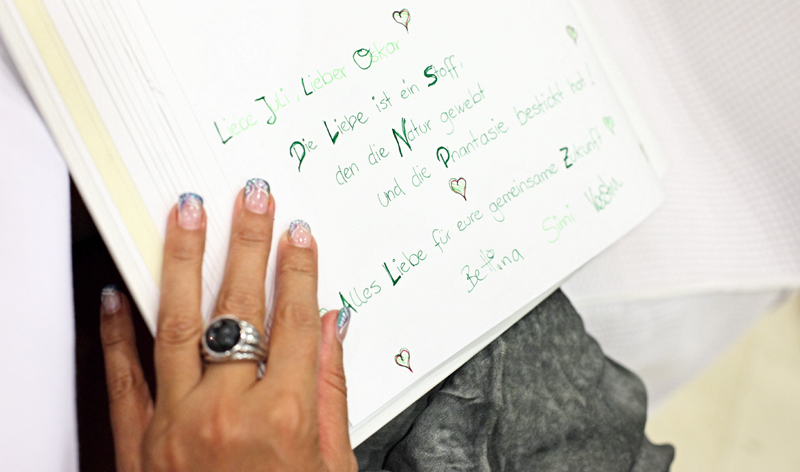 Liebe Juli, Lieber Oskar
Die Liebe ist ein Stoff,
den die Natur gewebt
und die Phantasie bestickt hat!
Alles Liebe für eure gemeinsame Zukunft
Bettina Simi